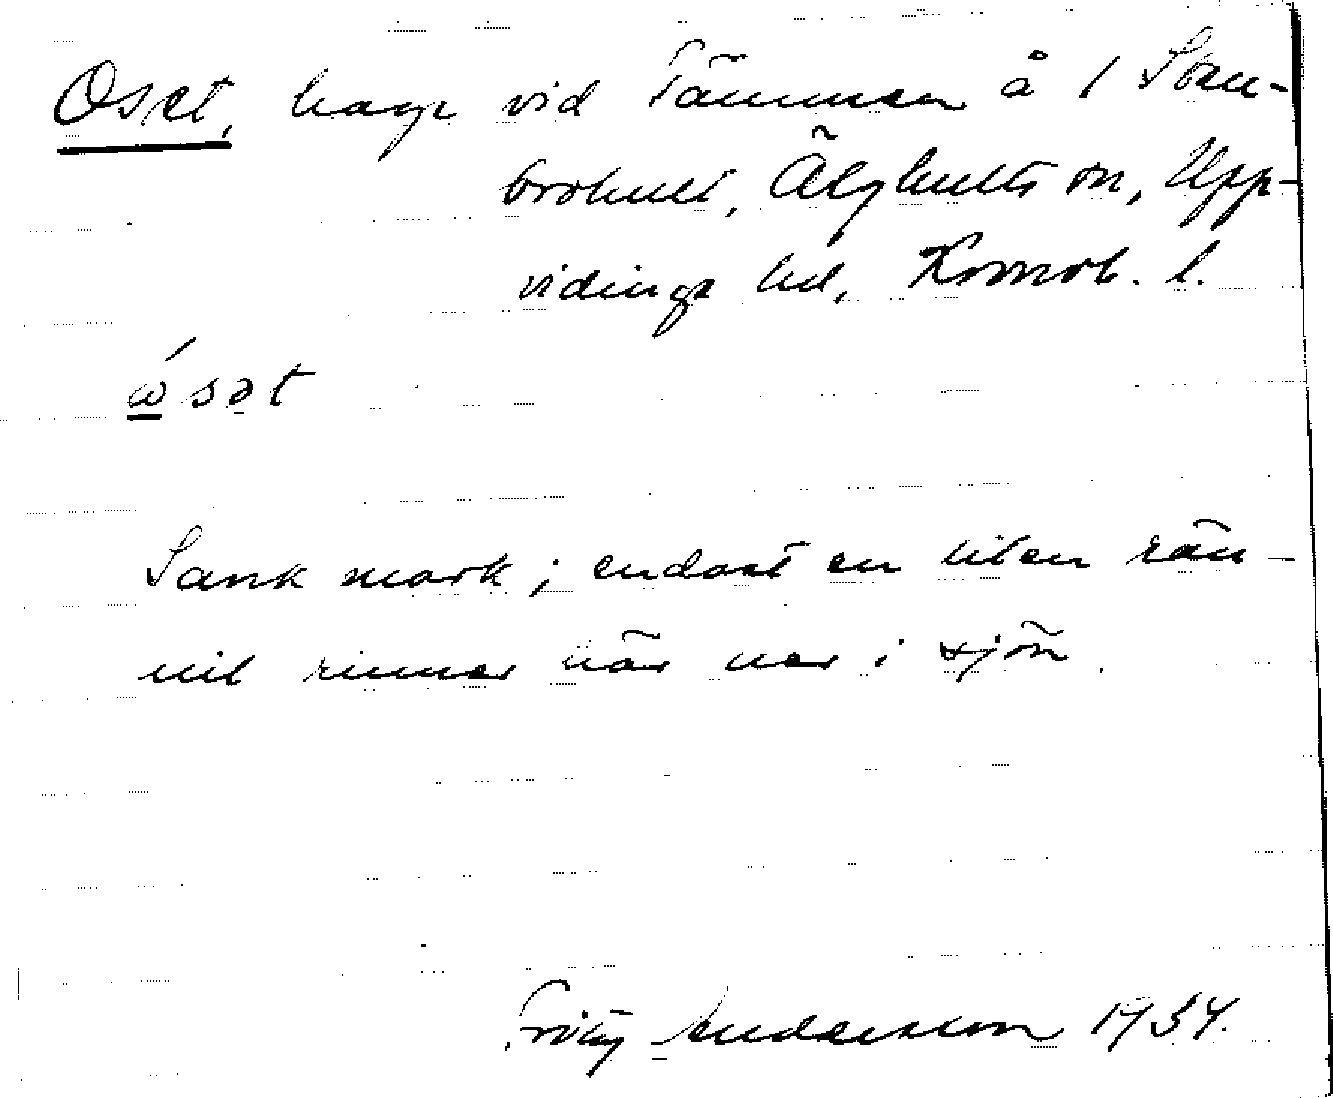 Oset, hage vid Tämmen å 1 Sten-
brohult, Älghults sn, Upp-
vidinge hd, Kronob. l.
ώsət
Sank mark; endast en liten rän-
nil rinner här ner i sjön.
Fritz Andersson 1934.